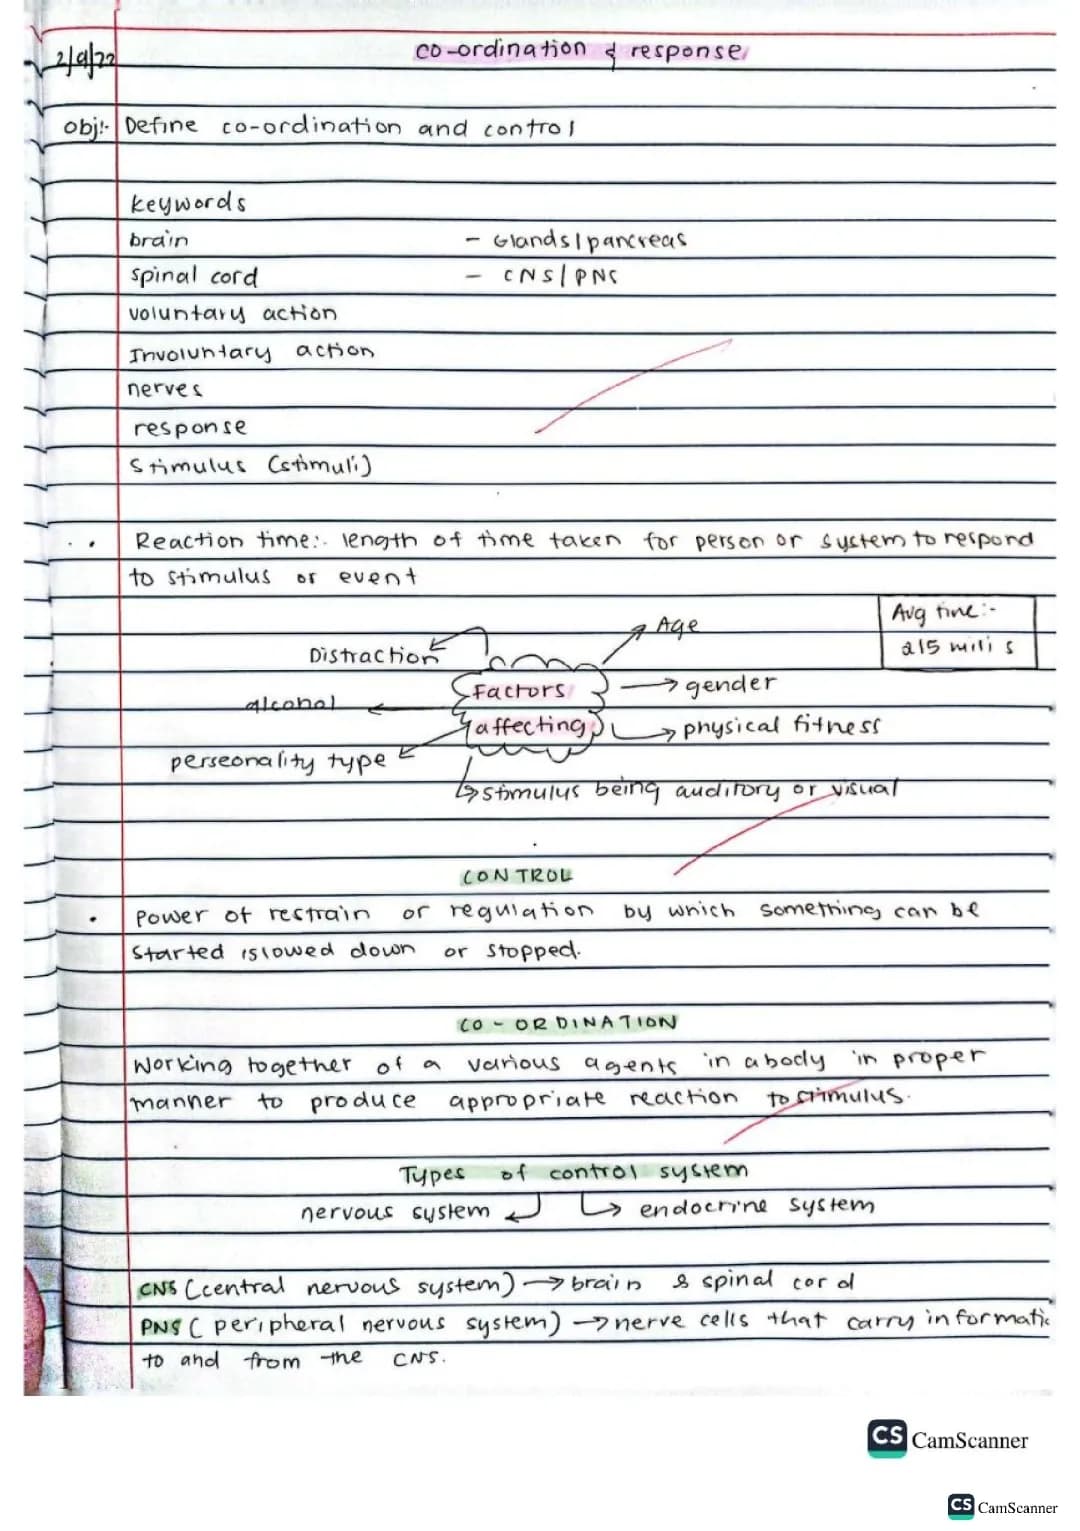 2/9/22
co-ordination & response
obj:- Define co-ordination and control
keywords
brain - Glands/pancreas
spinal cord - CNS/PNS
voluntary action
Involuntary action
nerves
response
Stimulus (stimuli)
Reaction time:- length of time taken for person or system to respond
to stimulus or event
Avg time:-
215 mili s
Age
Distraction
Factors
affecting
gender
alcohol
physical fitness
perseonality type
stimulus being auditory or visual
CONTROL
• Power of restrain or regulation by which something can be
started /slowed down or stopped.
CO-ORDINATION
Working together of a various agents in a body in proper
manner to produce appropriate reaction to stimulus.
Types of control system
nervous system endocrine system
CNS (central nervous system) → brain & spinal cord
PNS (peripheral nervous system) → nerve cells that carry informatic
to and from the CNS.
CS CamScanner
CS CamScanner